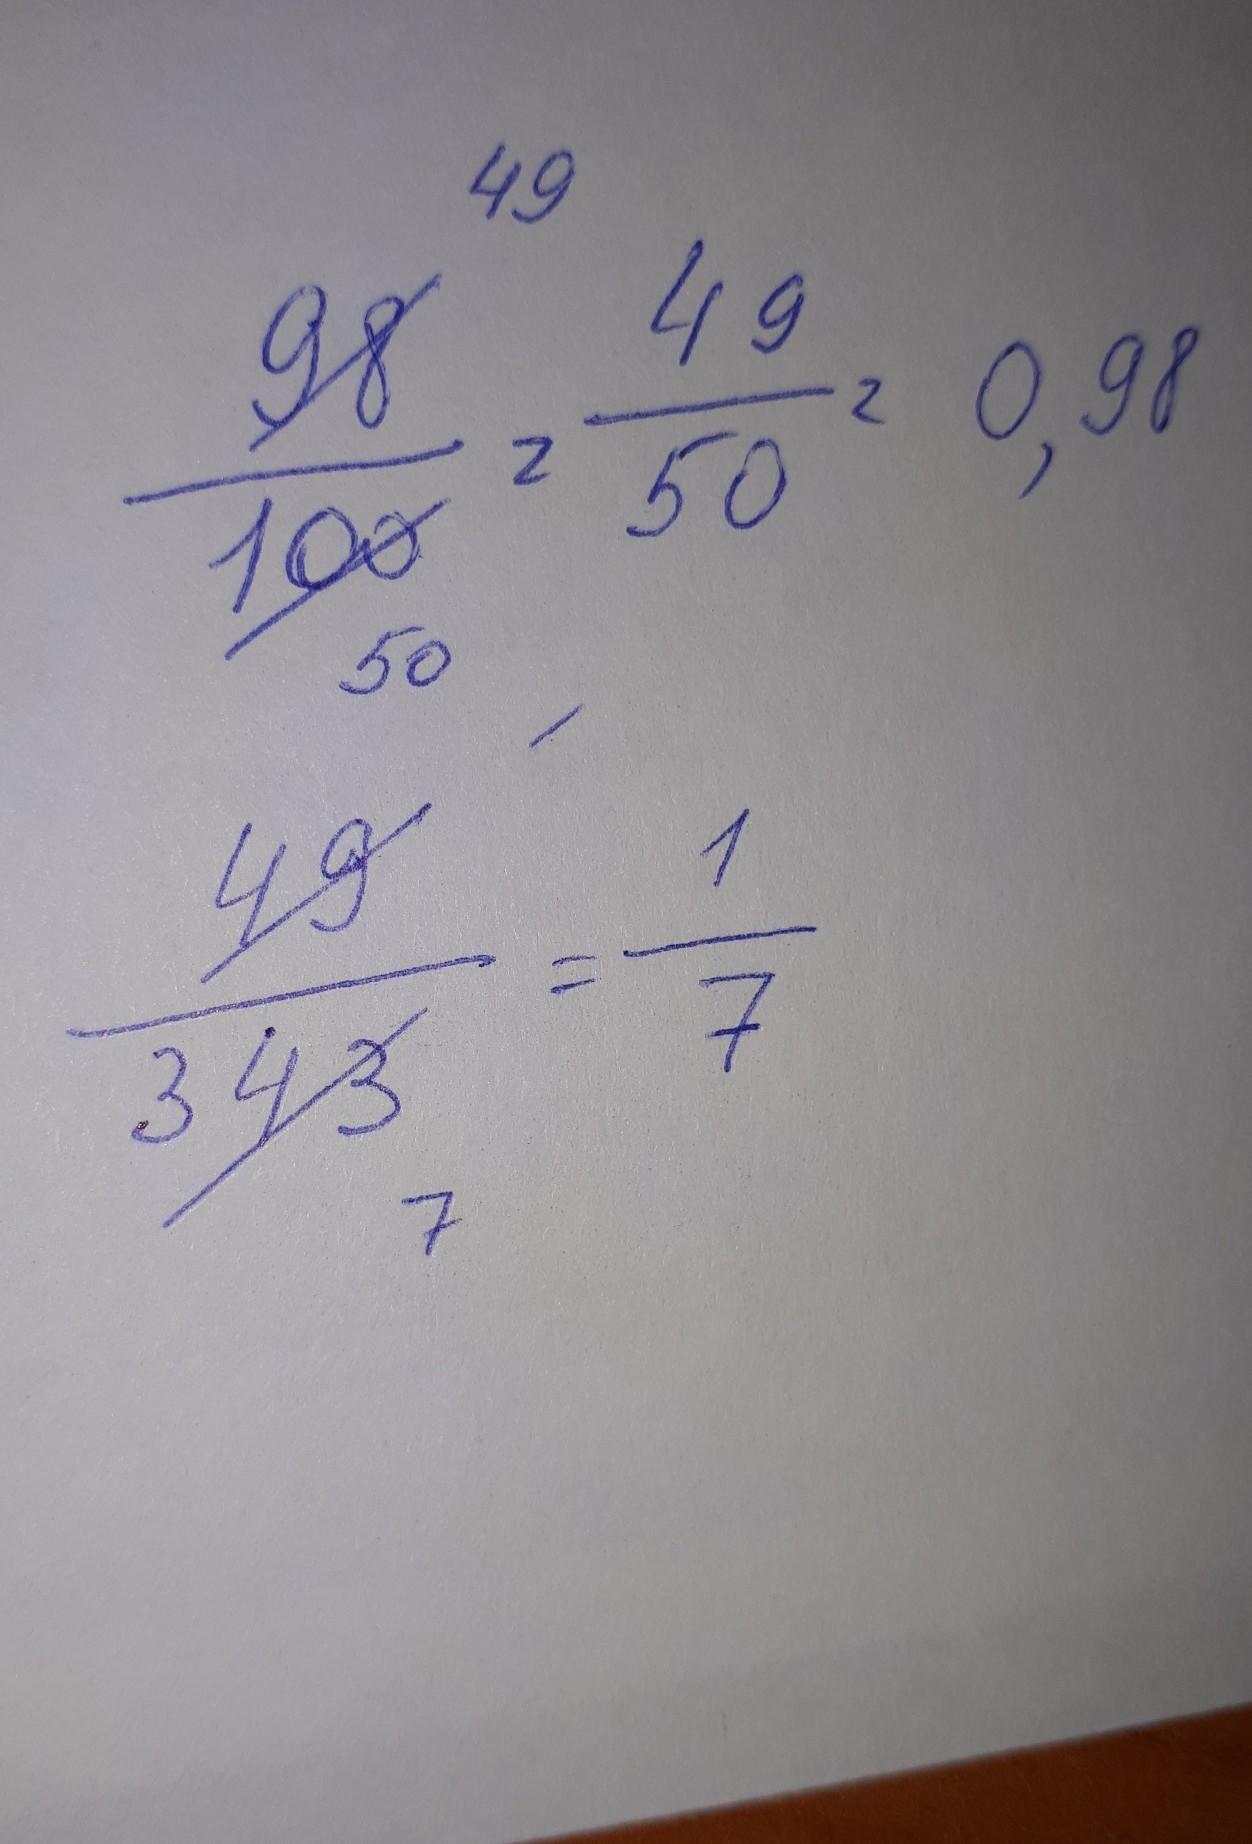 49
98/100 = 49/50 = 0,98
50
49/343 = 1/7
7